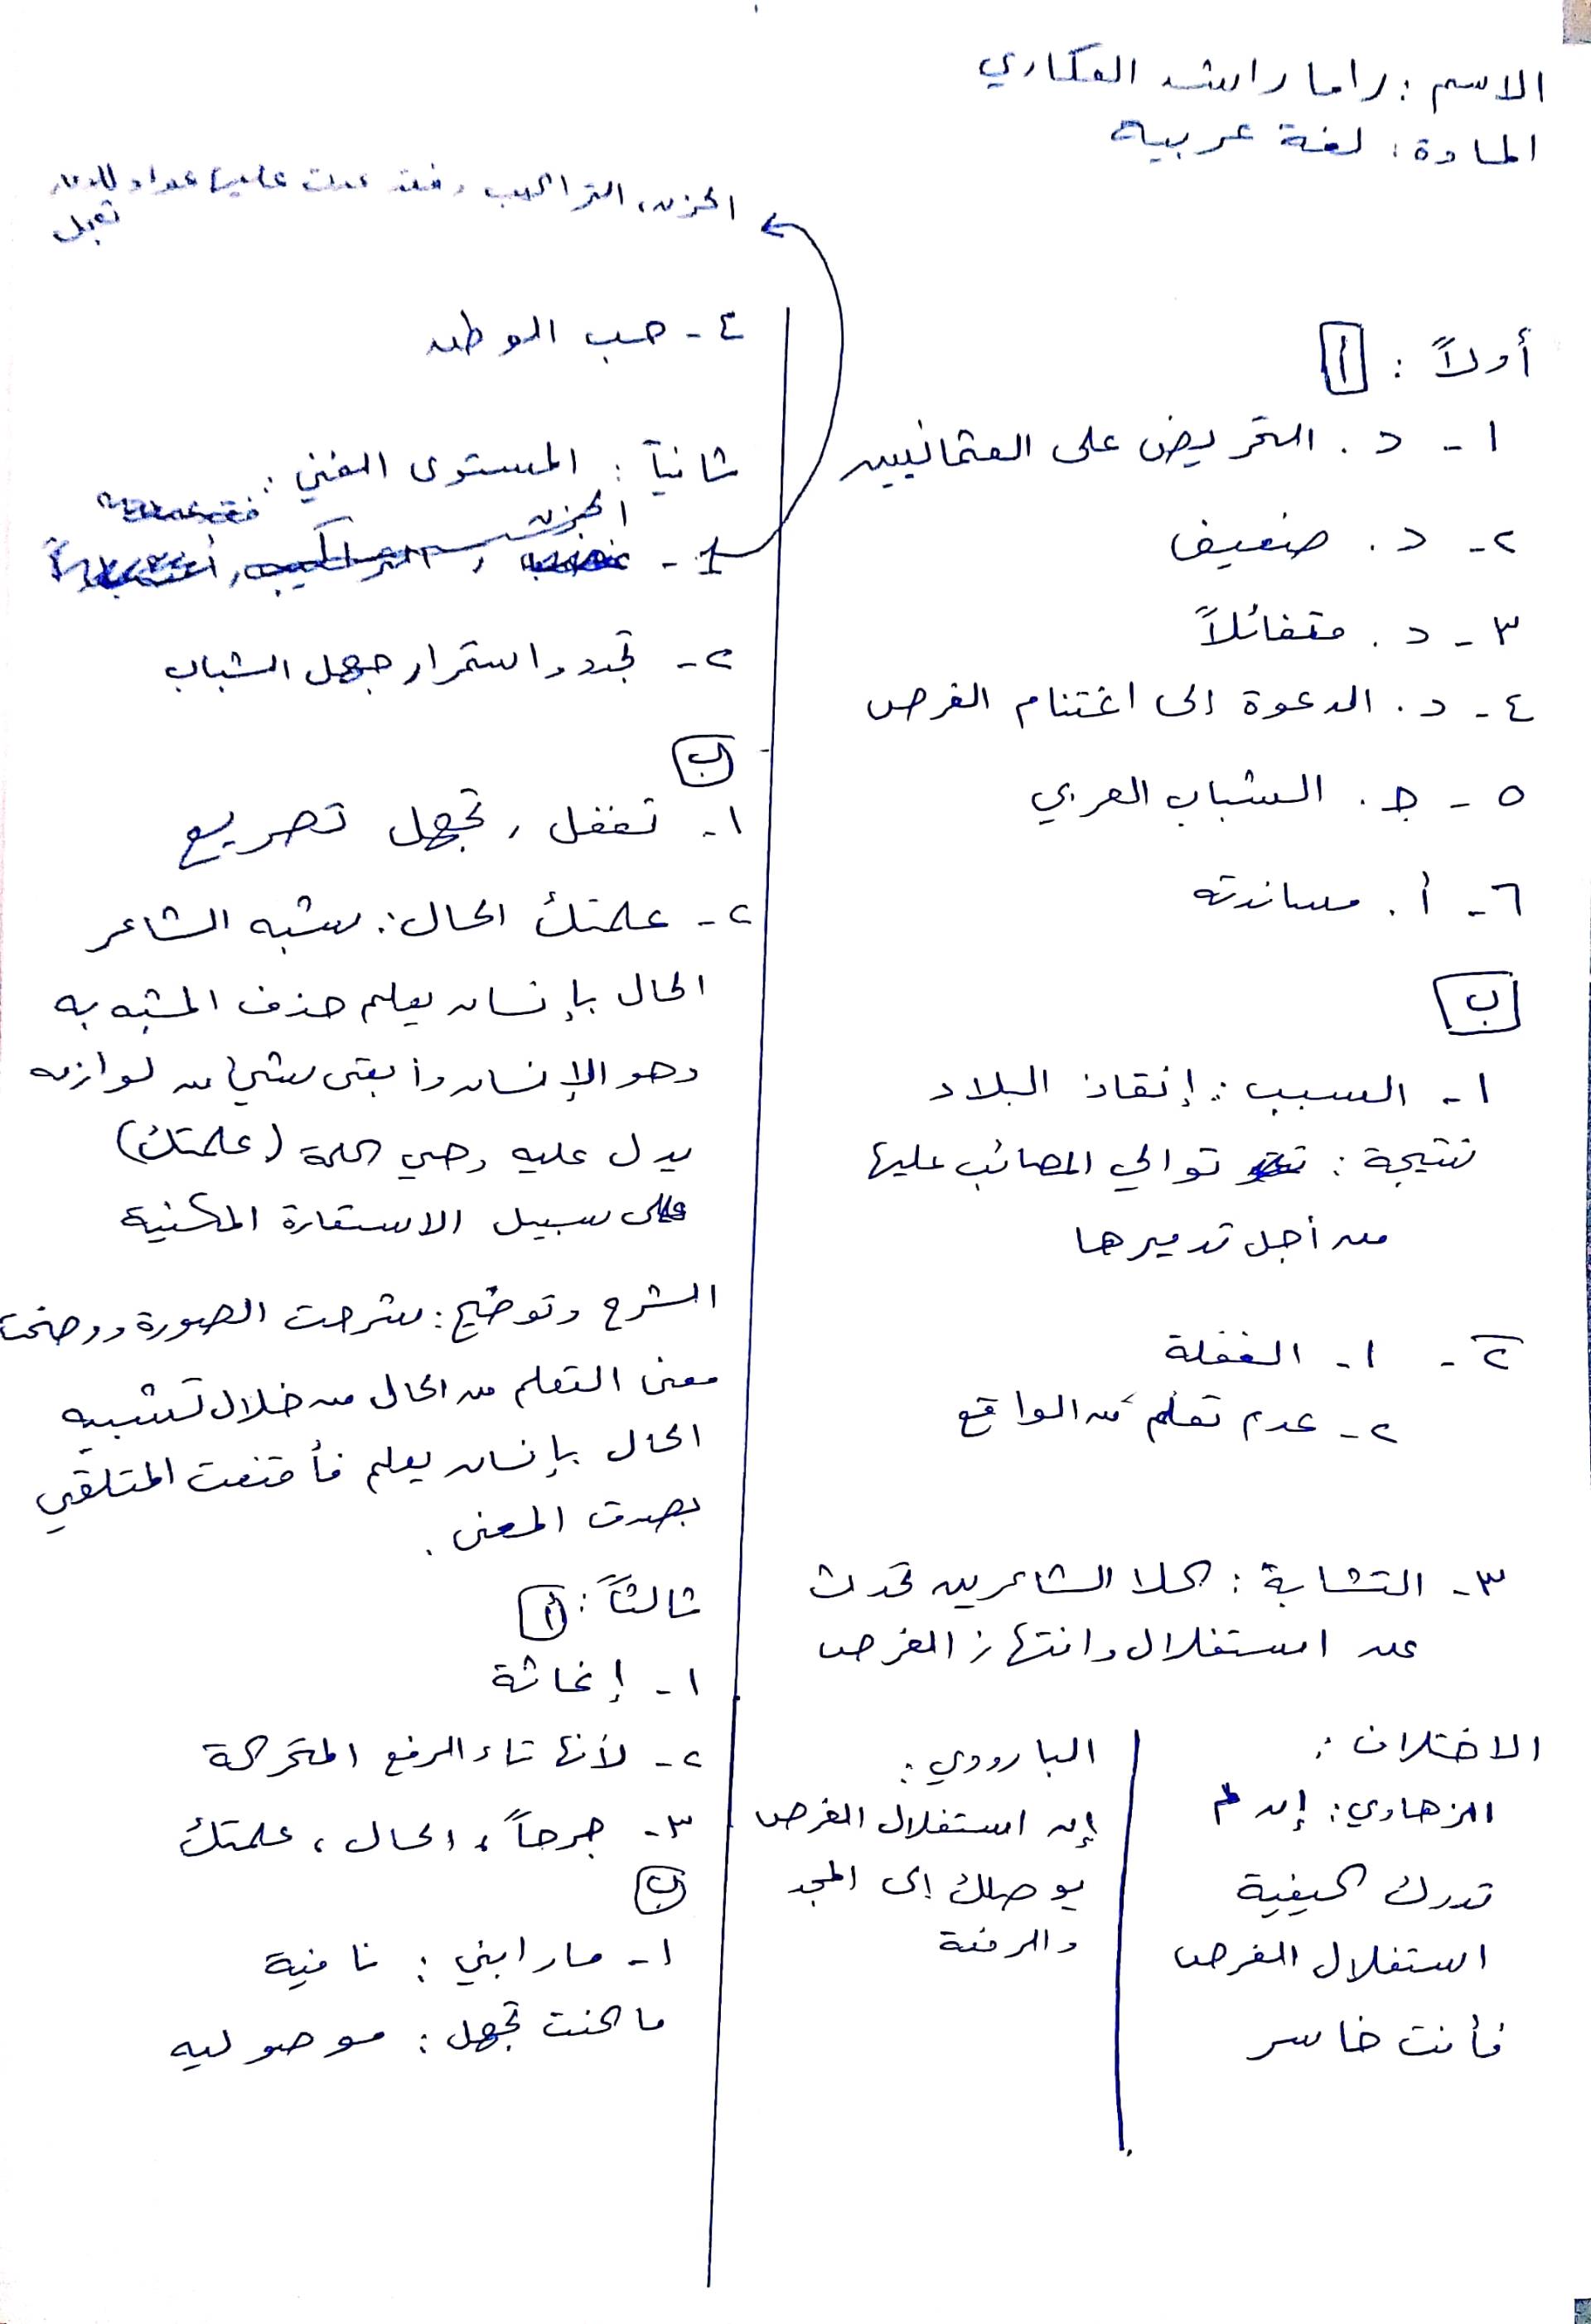 الاسم : راما راشد العكاري
المادة : لغة عربية
أولاً : أ
١ - د . التحريض على العثمانيين
٢ - د . ضعيف
٣ - د . متفائلاً
٤ - د . الدعوة إلى اغتنام الفرص
٥ - جـ . الشباب العربي
٦ - أ . مساندته
ب
١ - السبب : إنقاذ البلاد
نتيجة : توالي المصائب عليها
من أجل تدميرها
٢ - ١ - الغفلة
٢ - عدم تعلم من الواقع
٣ - التشابة : كلا الشاعرين تحدث
عن استغلال وانتهاز الفرص
الاختلاف :
الزهاوي : إن لم
تدرك كيفية
استغلال الفرص
فأنت خاسر
البارودي :
إن استغلال الفرص
يوصلك إلى المجد
والرفعة
الحزن ، التراكيب ، فقد عدت عليها عواد للدهر
تعجل
٤ - حب الوطن
ثانياً : المستوى الفني :
١ -
٢ - تجدد واستمرار جهل الشباب
ب
١ - تغفل ، تجهل تصريع
٢ - علمتك الحال : شبه الشاعر
الحال بإنسان يعلم حذف المشبه به
وهو الإنسان وأبقى شيء من لوازمه
يدل عليه وهي كلمة (علمتك)
على سبيل الاستعارة المكنية
الشرح وتوضيح : شرحت الصورة ووضحت
معنى التعلم من الحال من خلال تشبيه
الحال بإنسان يعلم فأقنعت المتلقي
بصدق المعنى .
ثالثاً : أ
١ - إغاثة
٢ - لأنها تاء الرفع المتحركة
٣ - جرحاً ، الحال ، علمتك
ب
١ - ما رابني : نافية
ما كنت تجهل : موصوليه